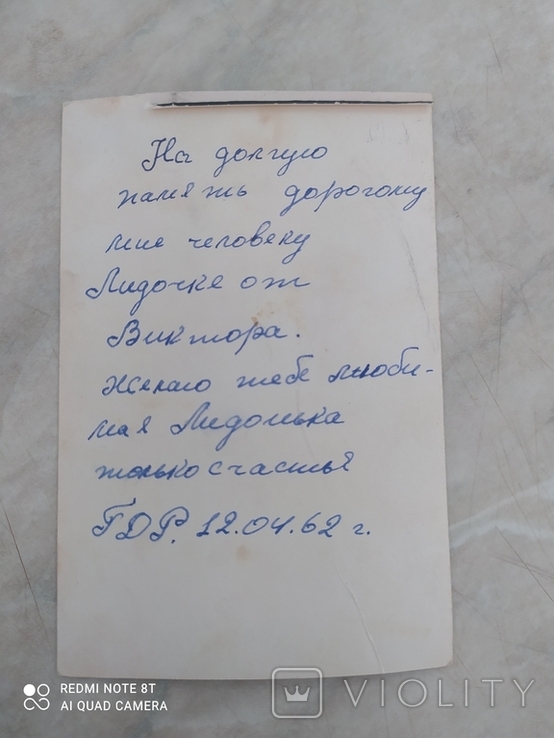 На долгую
память дорогому
мне человеку
Лидочке от
Виктора.
Желаю тебе люби-
мая Лидонька
только счастья
ГДР. 12.04.62 г.
REDMI NOTE 8T
AI QUAD CAMERA
VIOLITY